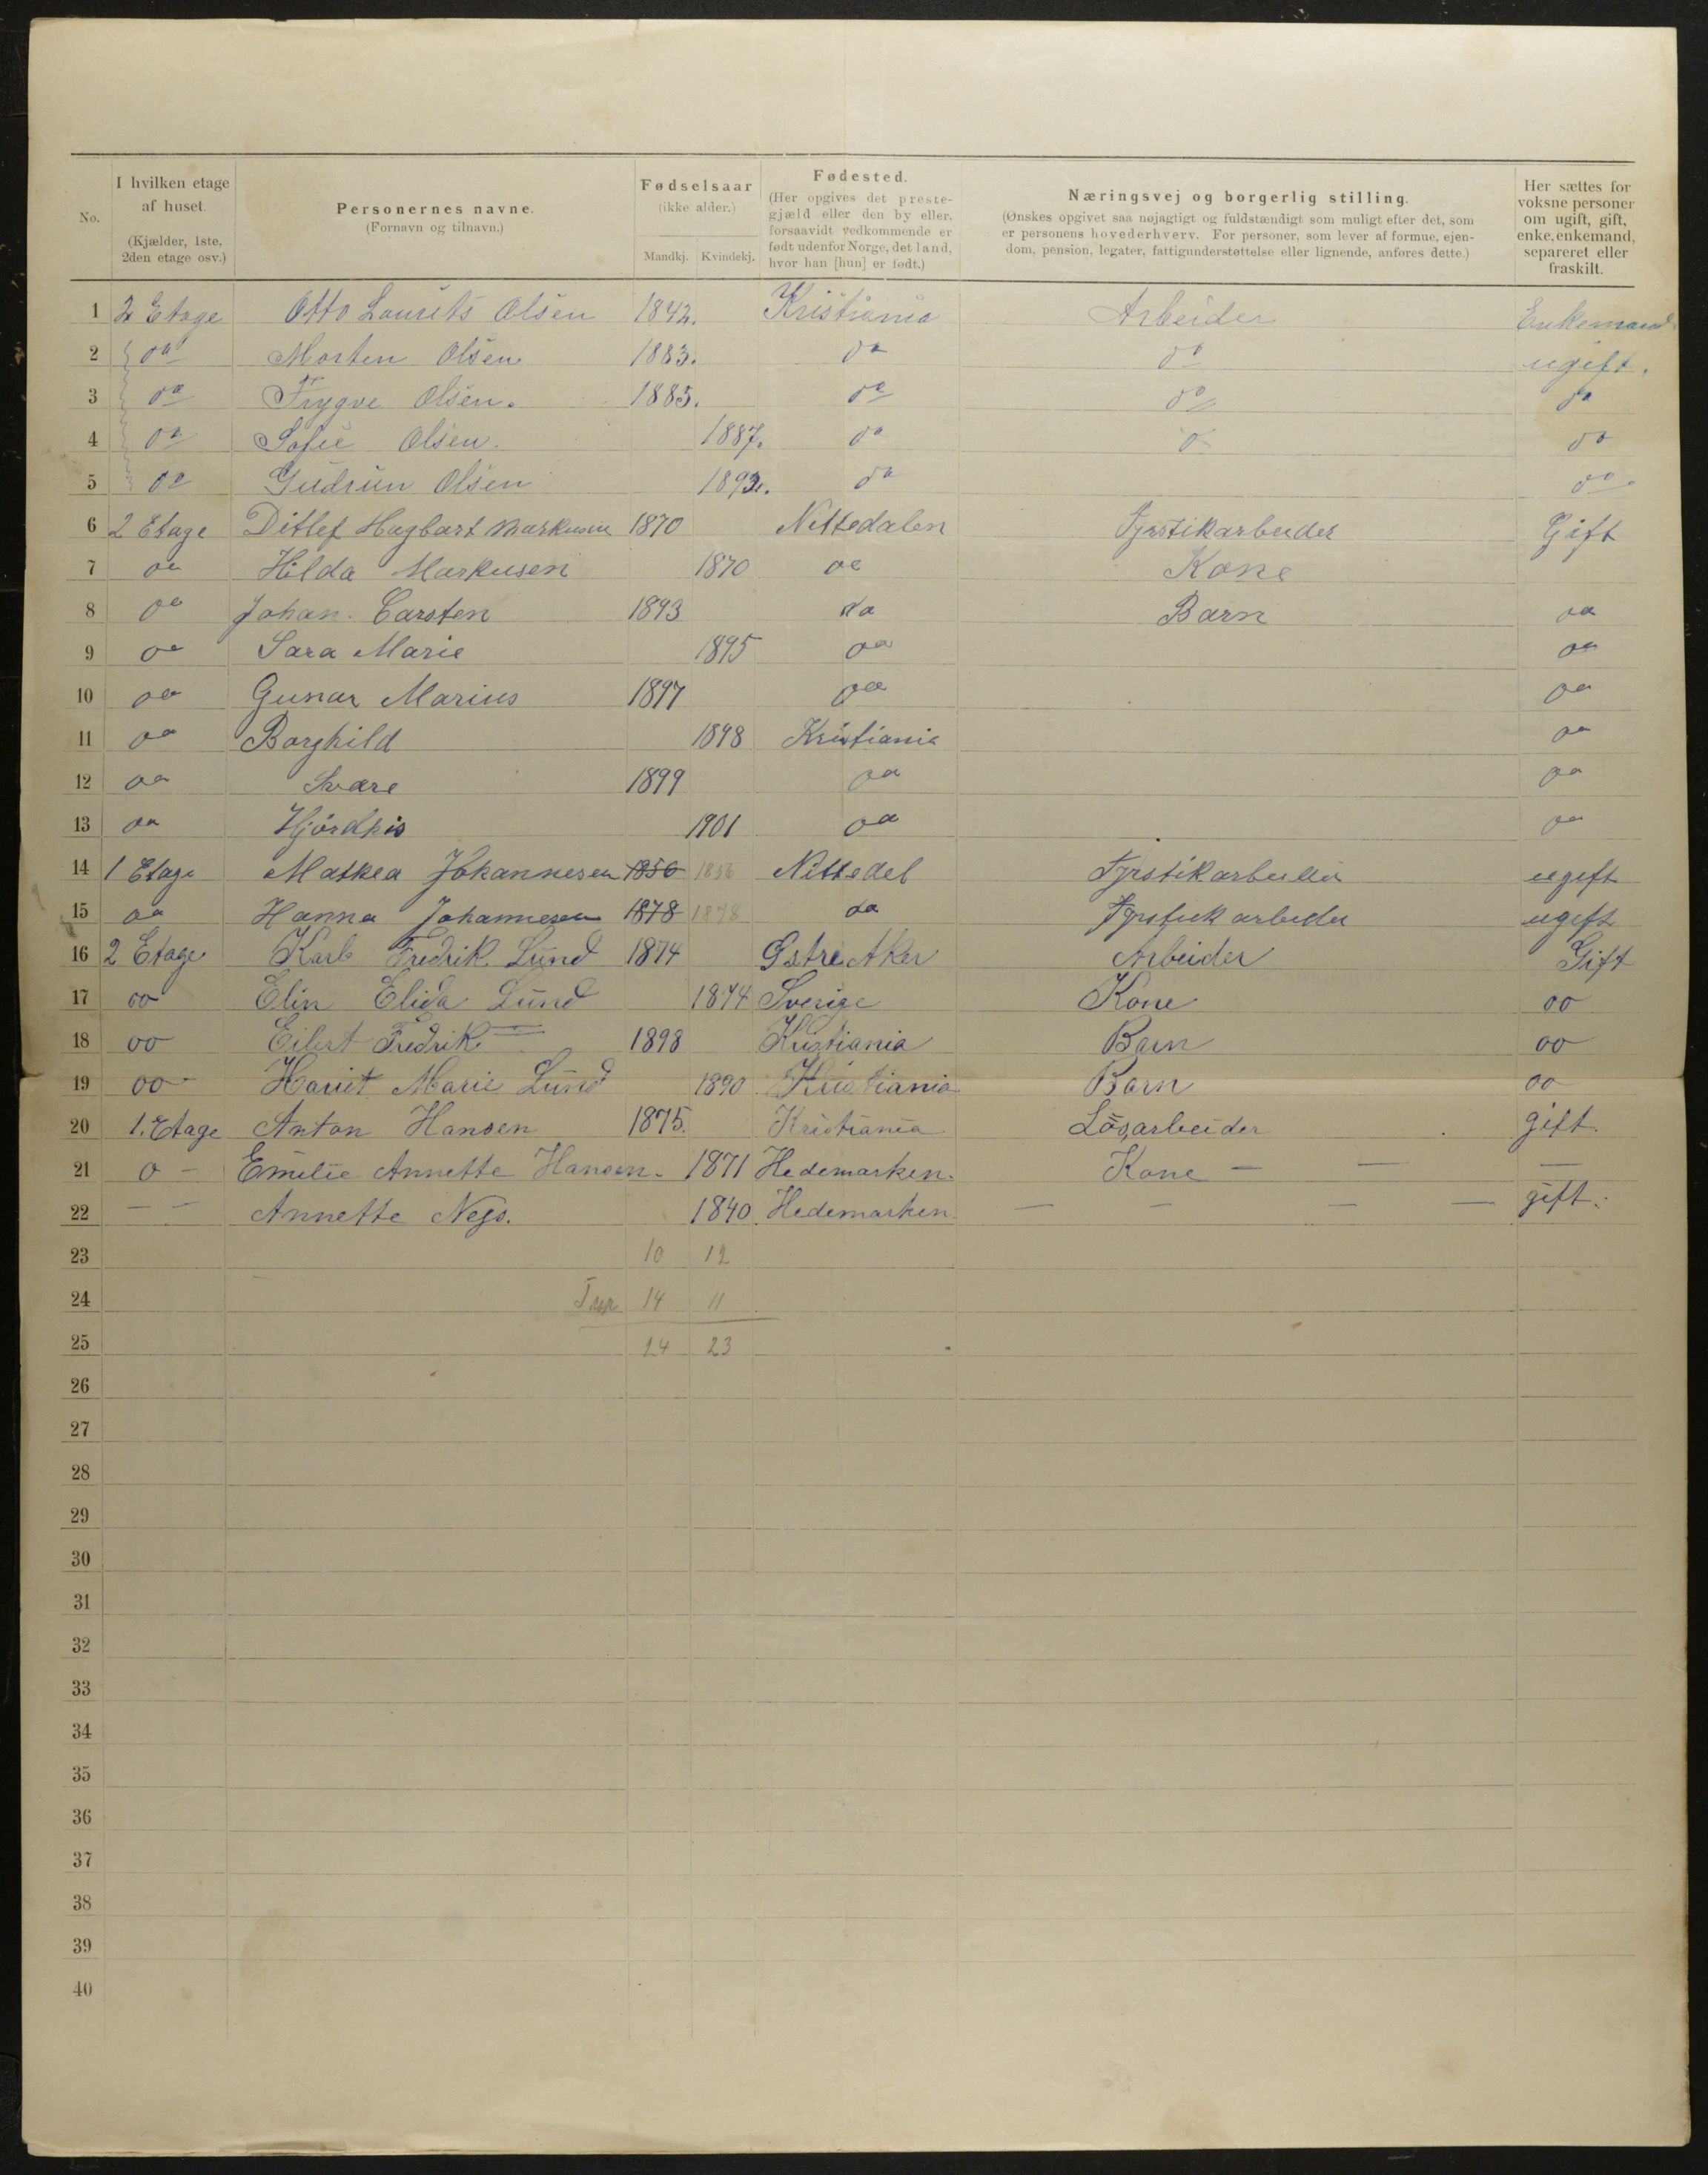 No.
I hvilken etage
af huset.
(Kjælder, 1ste,
2den etage osv.)
Personernes navne.
(Fornavn og tilnavn.)
Fødselsaar
(ikke alder.)
Mandkj. Kvindekj.
Fødested.
(Her opgives det preste-
gjæld eller den by eller,
forsaavidt vedkommende er
født udenfor Norge, det land,
hvor han [hun] er født.)
Næringsvej og borgerlig stilling.
(Ønskes opgivet saa nøjagtigt og fuldstændigt som muligt efter det, som
er personens hovederhverv. For personer, som lever af formue, ejen-
dom, pension, legater, fattigunderstøttelse eller lignende, anføres dette.)
Her sættes for
voksne personer
om ugift, gift,
enke, enkemand,
separeret eller
fraskilt.
1 2 Etage Otto Laurits Olsen 1842. Kristiania Arbeider Enkemand
2 do Morten Olsen 1883. do do ugift.
3 do Trygve Olsen. 1885. do do do
4 do Sofie Olsen. 1887. do do
5 do Gudrun Olsen 1892. do do
6 2 Etage Ditlef Hagbart Markusen 1870 Nittedalen Fyrstikarbeider Gift
7 oa Hilda Markusen 1870 oa Kone
8 oa Johan. Carsten 1893 da Barn oa
9 oa Sara Marie 1895 oa oa
10 oa Gunar Marius 1897 oa oa
11 oa Borghild 1898 Kristiania oa
12 oa Svære 1899 oa oa
13 oa Hjørdhis 1901 oa oa
14 1 Etage Mathea Johannesen 1856 1856 Nittedel Fyrstikarbeider ugift
15 oa Hanna Johannesen 1878 1878 da Fyrstick arbeider ugift
16 2 Etage Karl Fredrik Lund 1874 Østre Aker Arbeider Gift
17 oo Elin Elida Lund 1874 Sverige Kone oo
18 oo Eilert Fredrik — 1898 Kristiania Barn oo
19 oo Hariet Marie Lund 1890 Kristiania Barn oo
20 1. Etage Anton Hansen 1875. Kristiania Løsarbeider gift.
21 o - Emilie Annette Hansen. 1871 Hedemarken. Kone — — —
22 — — Annette Negs. 1840. Hedemarken — — — — gift.
23 10 12
24 14 11
25 24 23
26
27
28
29
30
31
32
33
34
35
36
37
38
39
40